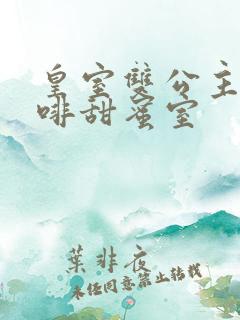 皇室雙公主
啡甜蜜室
葉非夜
未經同意禁止轉載